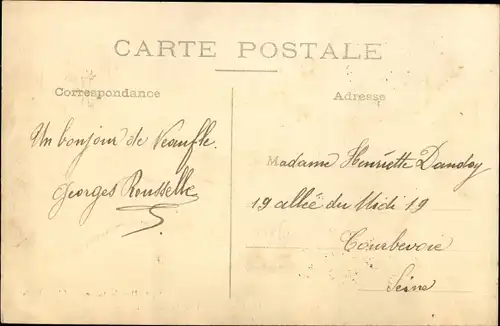 CARTE POSTALE
Correspondance
Adresse
Un bonjour de Neaufle.
Georges Rousselle
Madame Henriette Danday
19 allée du Midi 19
Courbevoie
Seine